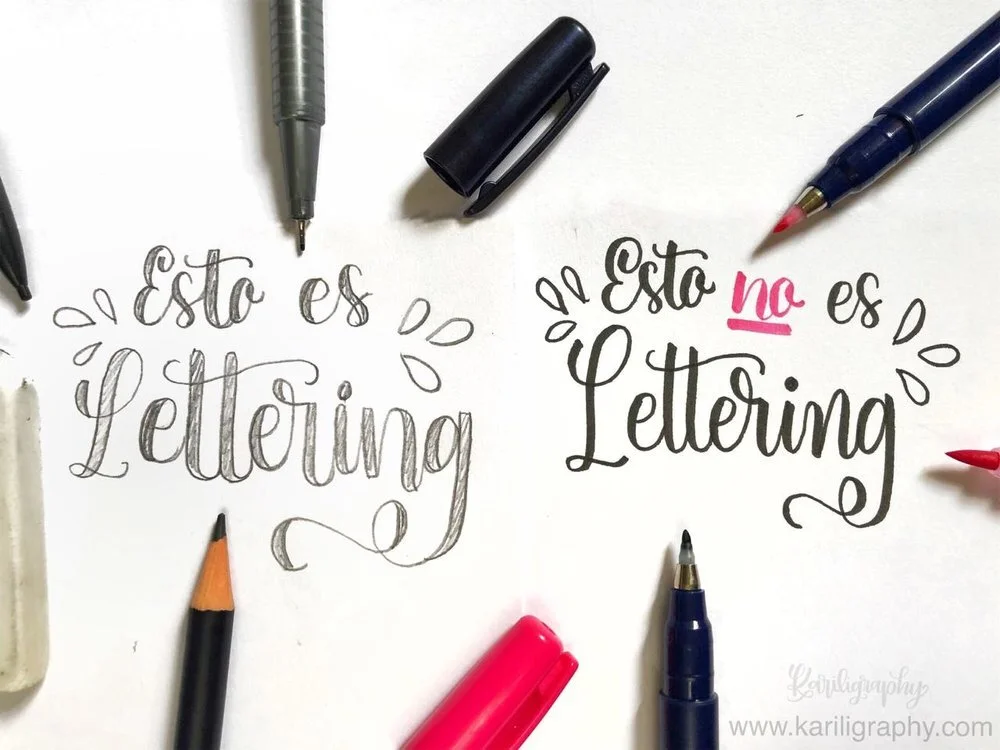 Esto es
Lettering
Esto no es
Lettering
Kariligraphy
www.kariligraphy.com